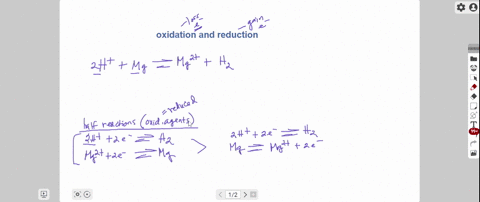 -loss e⁻
-gain e⁻
oxidation and reduction
2H⁺ + Mg ⇌ Mg²⁺ + H₂
=reduced
half reactions (oxid. agents)
2H⁺ + 2e⁻ ⇌ H₂
Mg²⁺ + 2e⁻ ⇌ Mg
2H⁺ + 2e⁻ ⇌ H₂
Mg ⇌ Mg²⁺ + 2e⁻
1/2
99+